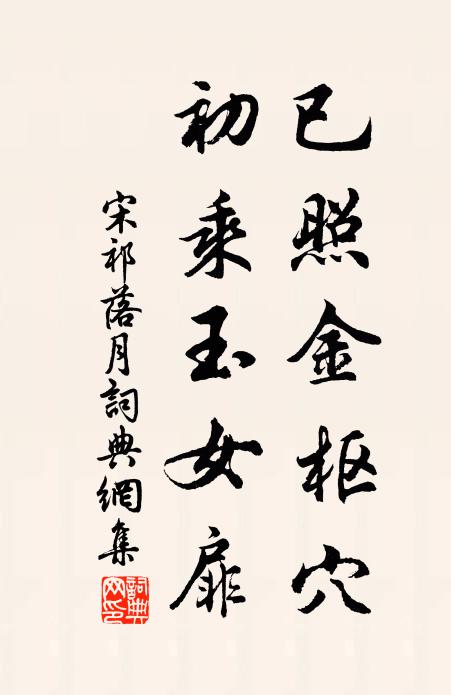 已照金枢穴
初乘玉女扉
宋祁落月詞典網集
詞典网印